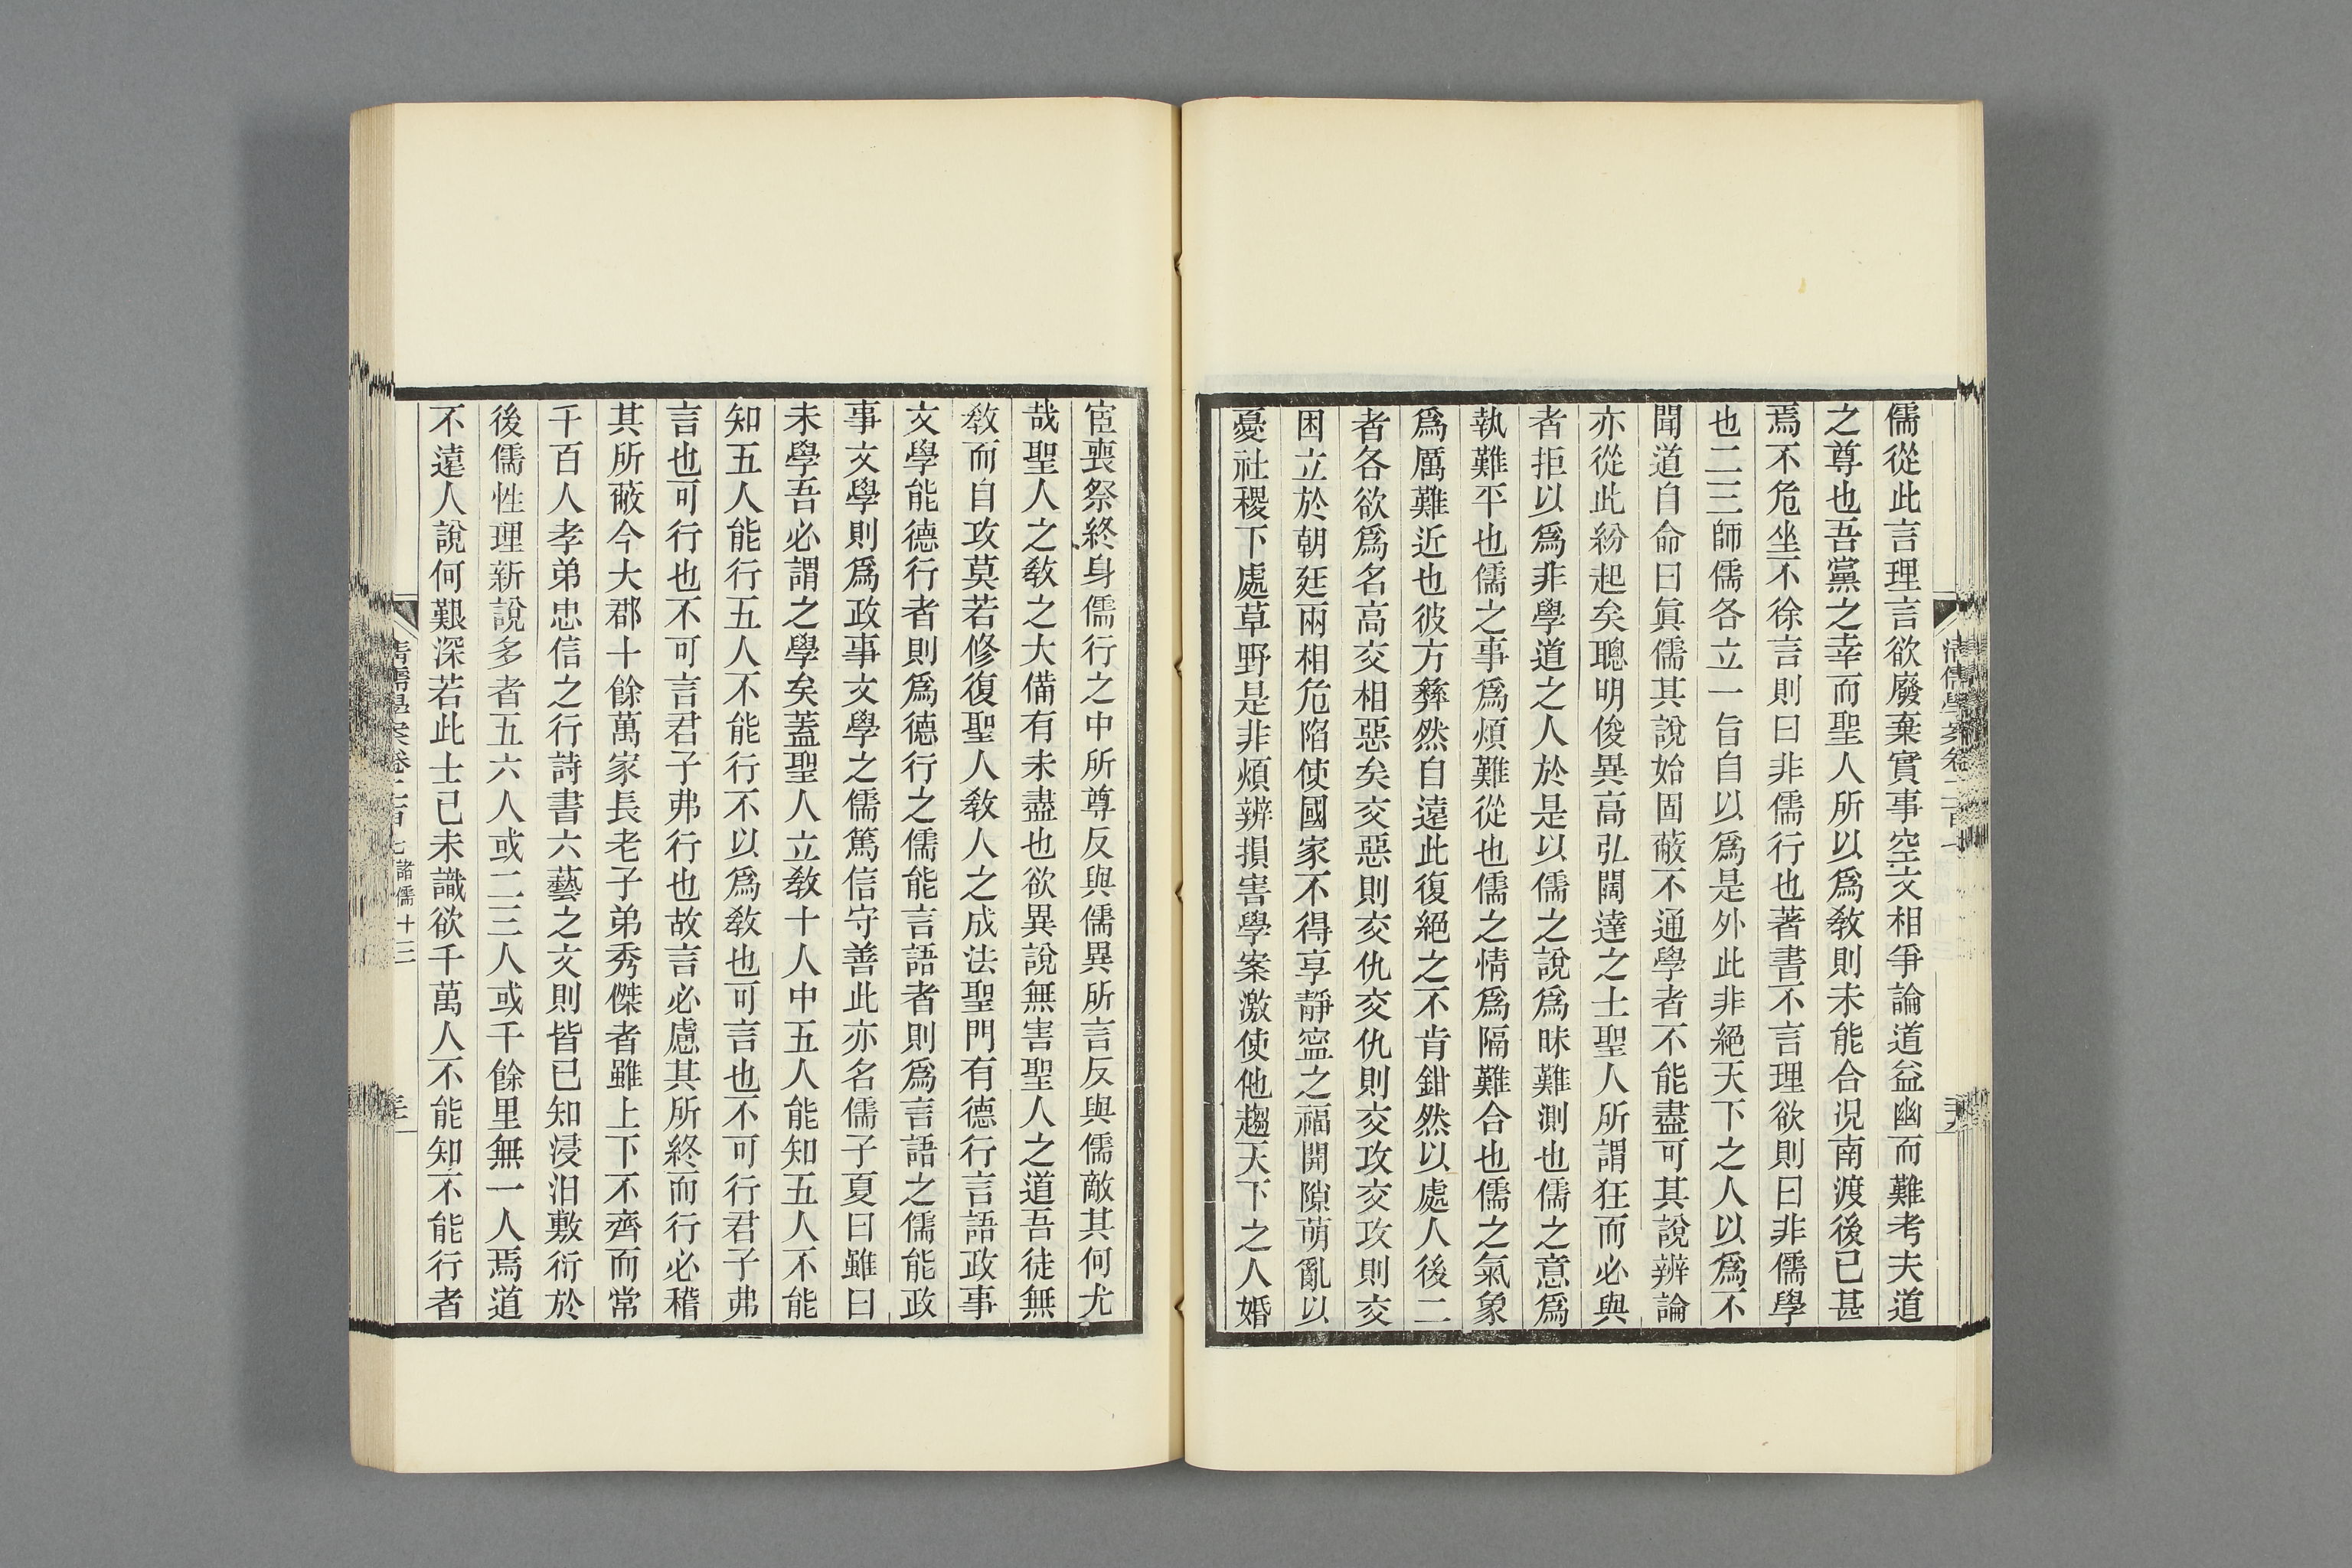 儒從此言理言欲廢棄實事空文相爭論道益幽而難考夫道
之尊也吾黨之幸而聖人所以爲敎則未能合況南渡後已甚
焉不危坐不徐言則曰非儒行也著書不言理欲則曰非儒學
也二三師儒各立一旨自以爲是外此非絕天下之人以爲不
聞道自命曰眞儒其說始固蔽不通學者不能盡可其說辨論
亦從此紛起矣聰明俊異高弘闊達之士聖人所謂狂而必與
者拒以爲非學道之人於是以儒之說爲昧難測也儒之意爲
執難平也儒之事爲煩難從也儒之情爲隔難合也儒之氣象
爲厲難近也彼方彝然自遠此復絕之不肯鉗然以處人後二
者各欲爲名高交相惡矣交惡則交仇交仇則交攻交攻則交
困立於朝廷兩相危陷使國家不得享靜寍之福開隙萌亂以
憂社稷下處草野是非煩辨損害學案激使他趨天下之人婚
宦喪祭終身儒行之中所尊反與儒異所言反與儒敵其何尤
哉聖人之敎之大備有未盡也欲異說無害聖人之道吾徒無
敎而自攻莫若修復聖人敎人之成法聖門有德行言語政事
文學能德行者則爲德行之儒能言語者則爲言語之儒能政
事文學則爲政事文學之儒篤信守善此亦名儒子夏曰雖曰
未學吾必謂之學矣蓋聖人立敎十人中五人能知五人不能
知五人能行五人不能行不以爲敎也可言也不可行君子弗
言也可行也不可言君子弗行也故言必慮其所終而行必稽
其所蔽今大郡十餘萬家長老子弟秀傑者雖上下不齊而常
千百人孝弟忠信之行詩書六藝之文則皆已知浸汨敷衍於
後儒性理新說多者五六人或二三人或千餘里無一人焉道
不遠人說何艱深若此士已未識欲千萬人不能知不能行者
諸儒十三